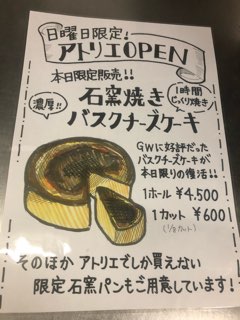 日曜日限定!
アトリエOPEN
本日限定販売!!
濃厚!!
石窯焼き
バスクチーズケーキ
1時間
じっくり焼き
GWに好評だった
バスクチーズケーキが
本日限りの復活!!
1ホール ¥4.500
1カット ¥600
(1/8カット)
そのほか アトリエでしか買えない
限定石窯パンもご用意しています!